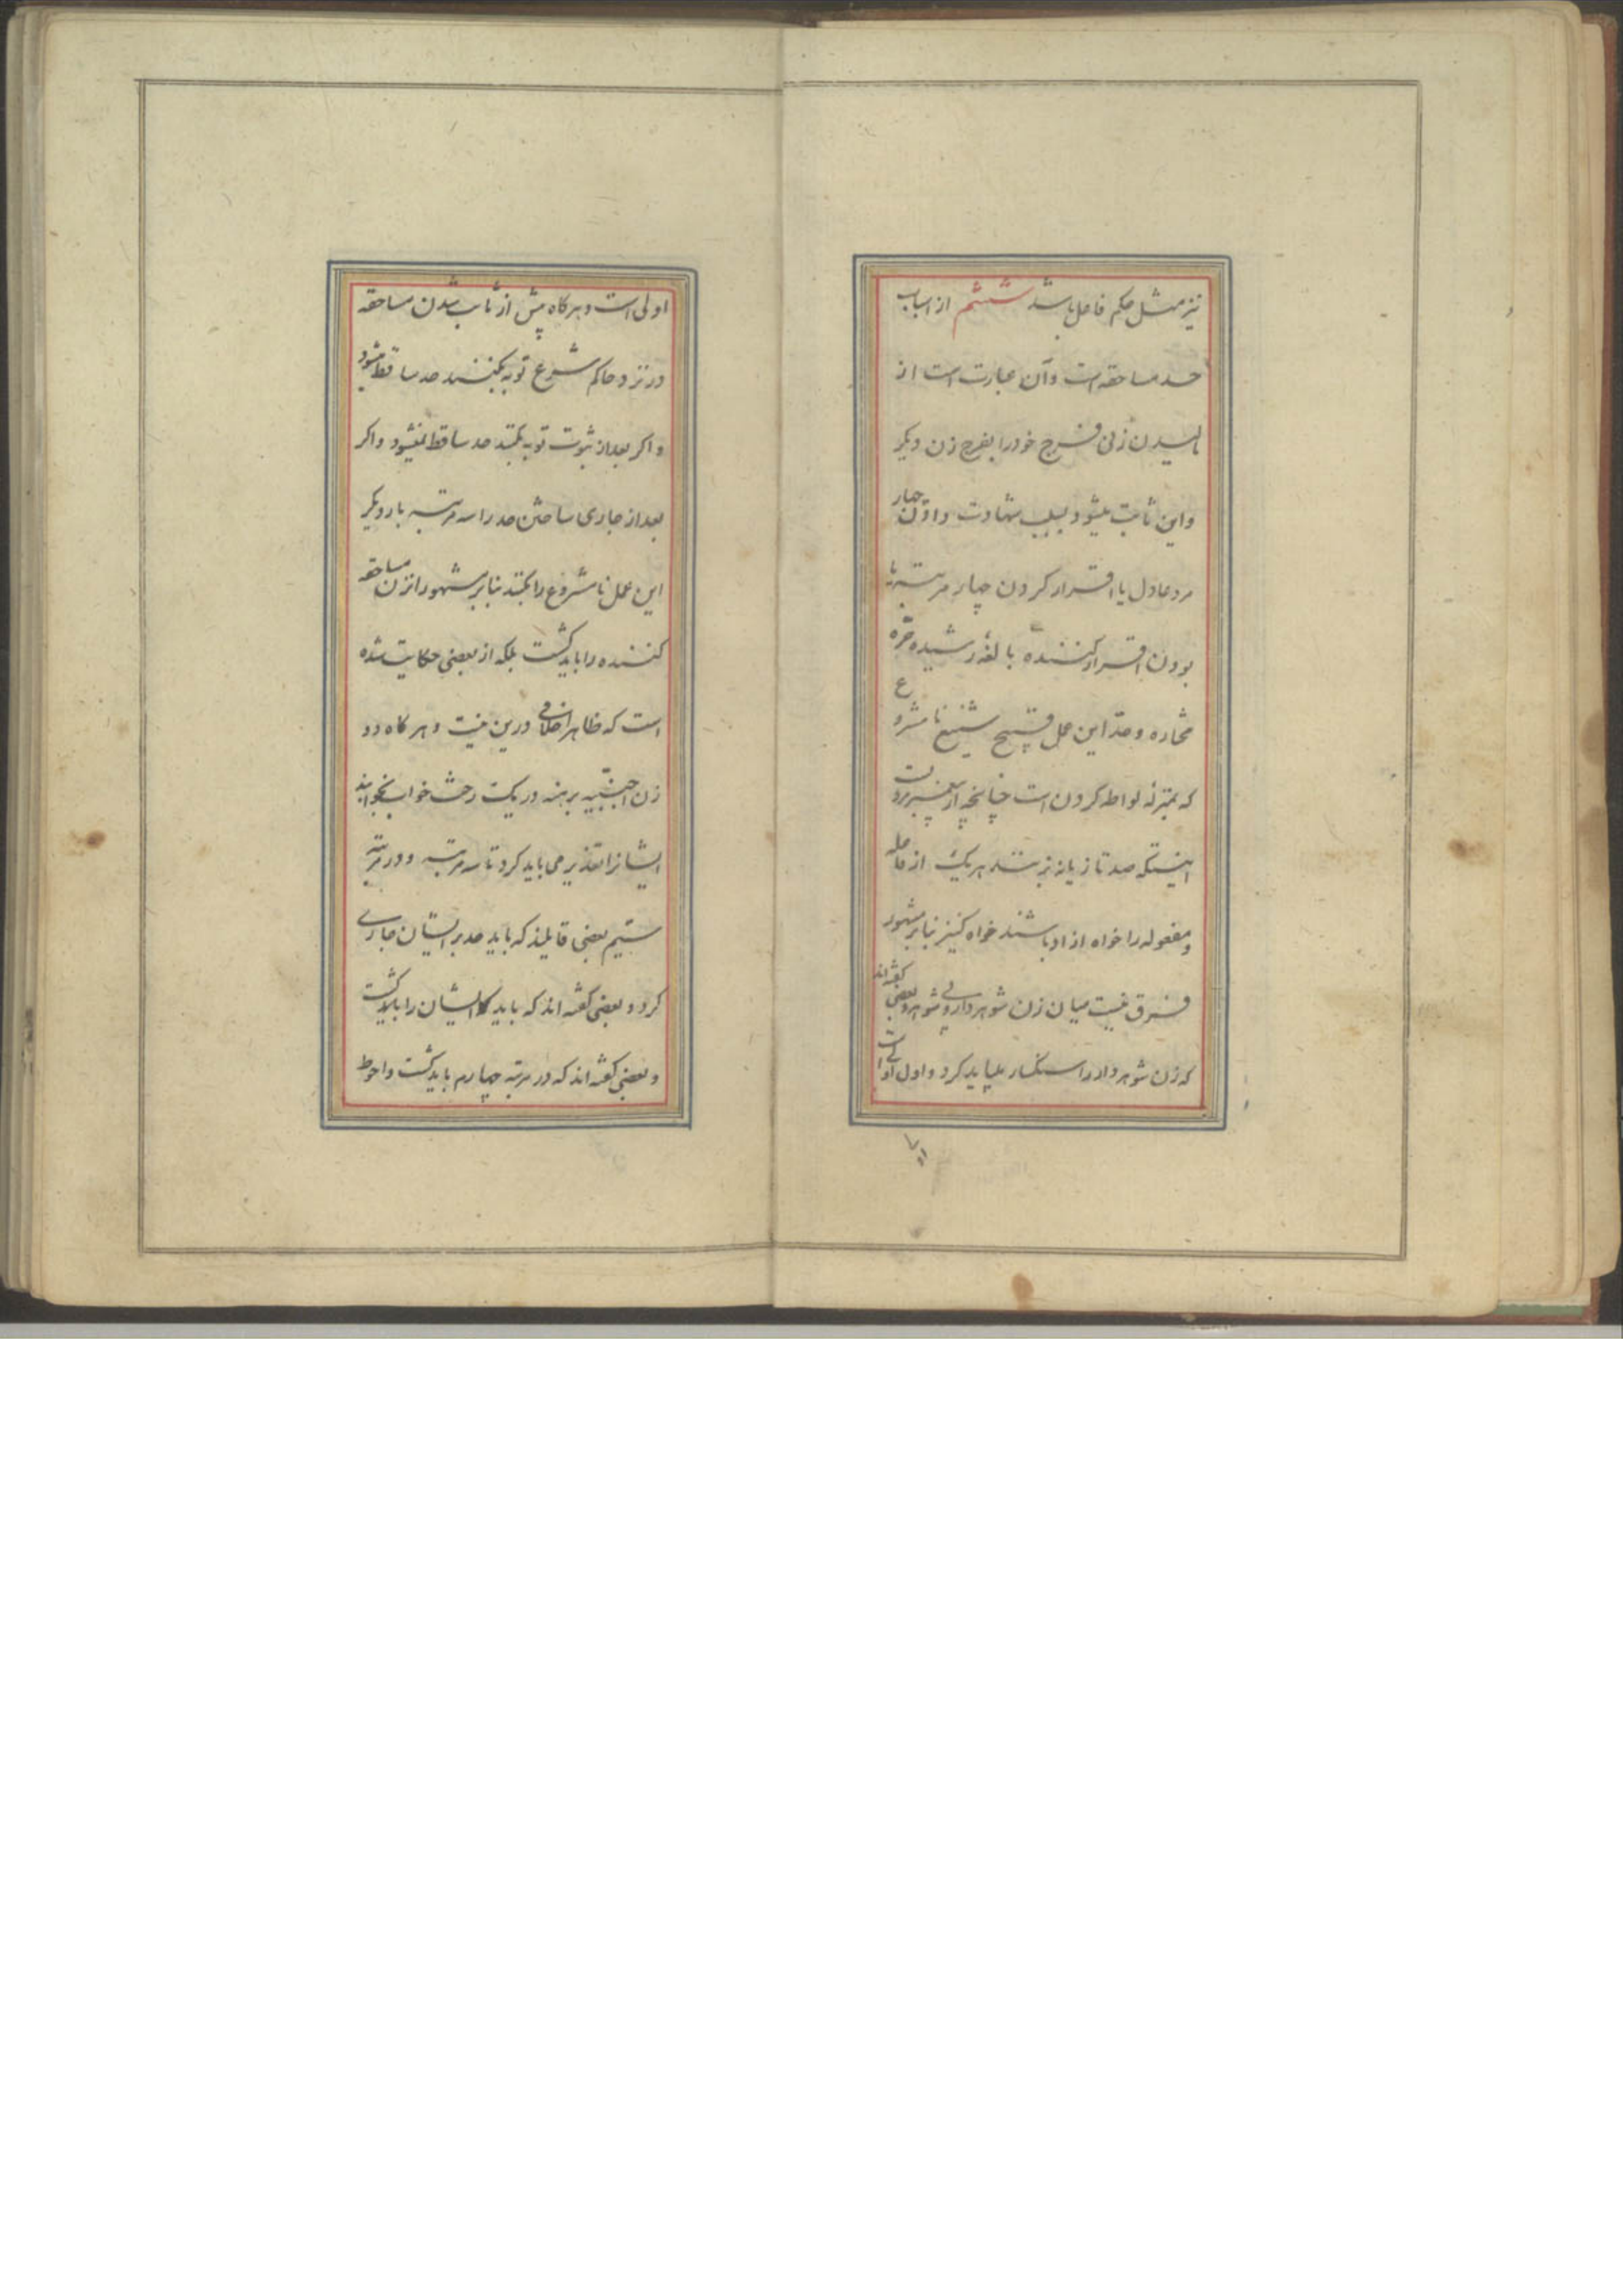 نیز مثل حکم فاعل باشد ششم از اسباب
حد مساحقه است و آن عبارت است از
مالیدن زنی فرج خود را بفرج زن دیگر
و این ثابت میشود بسبب شهادت دادن چهار
مرد عادل یا اقرار کردن چهار مرتبه با
بودن اقرار کننده بالغه رشیده حره
مختاره و حد این عمل قبیح شنیع نامشروع
که بمنزله لواطه کردن است چنانچه از پیغمبر مرویست
اینستکه صد تازیانه بزنند هر یک از فاعله
و مفعوله را خواه ازاد باشند خواه کنیز بنابر مشهور
فرق نیست میان زن شوهردار و بی شوهر و بعضی گفته‌اند
که زن شوهردار را سنکسار میباید کرد و اول اولی است
اولی است و هرکاه پیش از ثابت شدن مساحقه
در نزد حاکم شرع توبه بکنند حد ساقط میشود
و اکر بعد از ثبوت توبه بکنند حد ساقط نمیشود و اکر
بعد از جاری ساختن حد را سه مرتبه بار دیکر
این عمل نامشروع را بکنند بنابر مشهور انزن مساحقه
کننده را باید کشت بلکه از بعضی حکایت شده
است که ظاهرا خلافی درین نیست و هر کاه دو
زن اجنبیه برهنه در یک رخت خواب بخوابند
ایشانرا تعذیر می باید کرد تا سه مرتبه و در مرتبه
سیّم بعضی قایلند که باید حد بر ایشان جاری
کرد و بعضی گفته اند که باید ایشان را باید کشت
و بعضی گفته اند که در مرتبه چهارم باید کشت و احوط